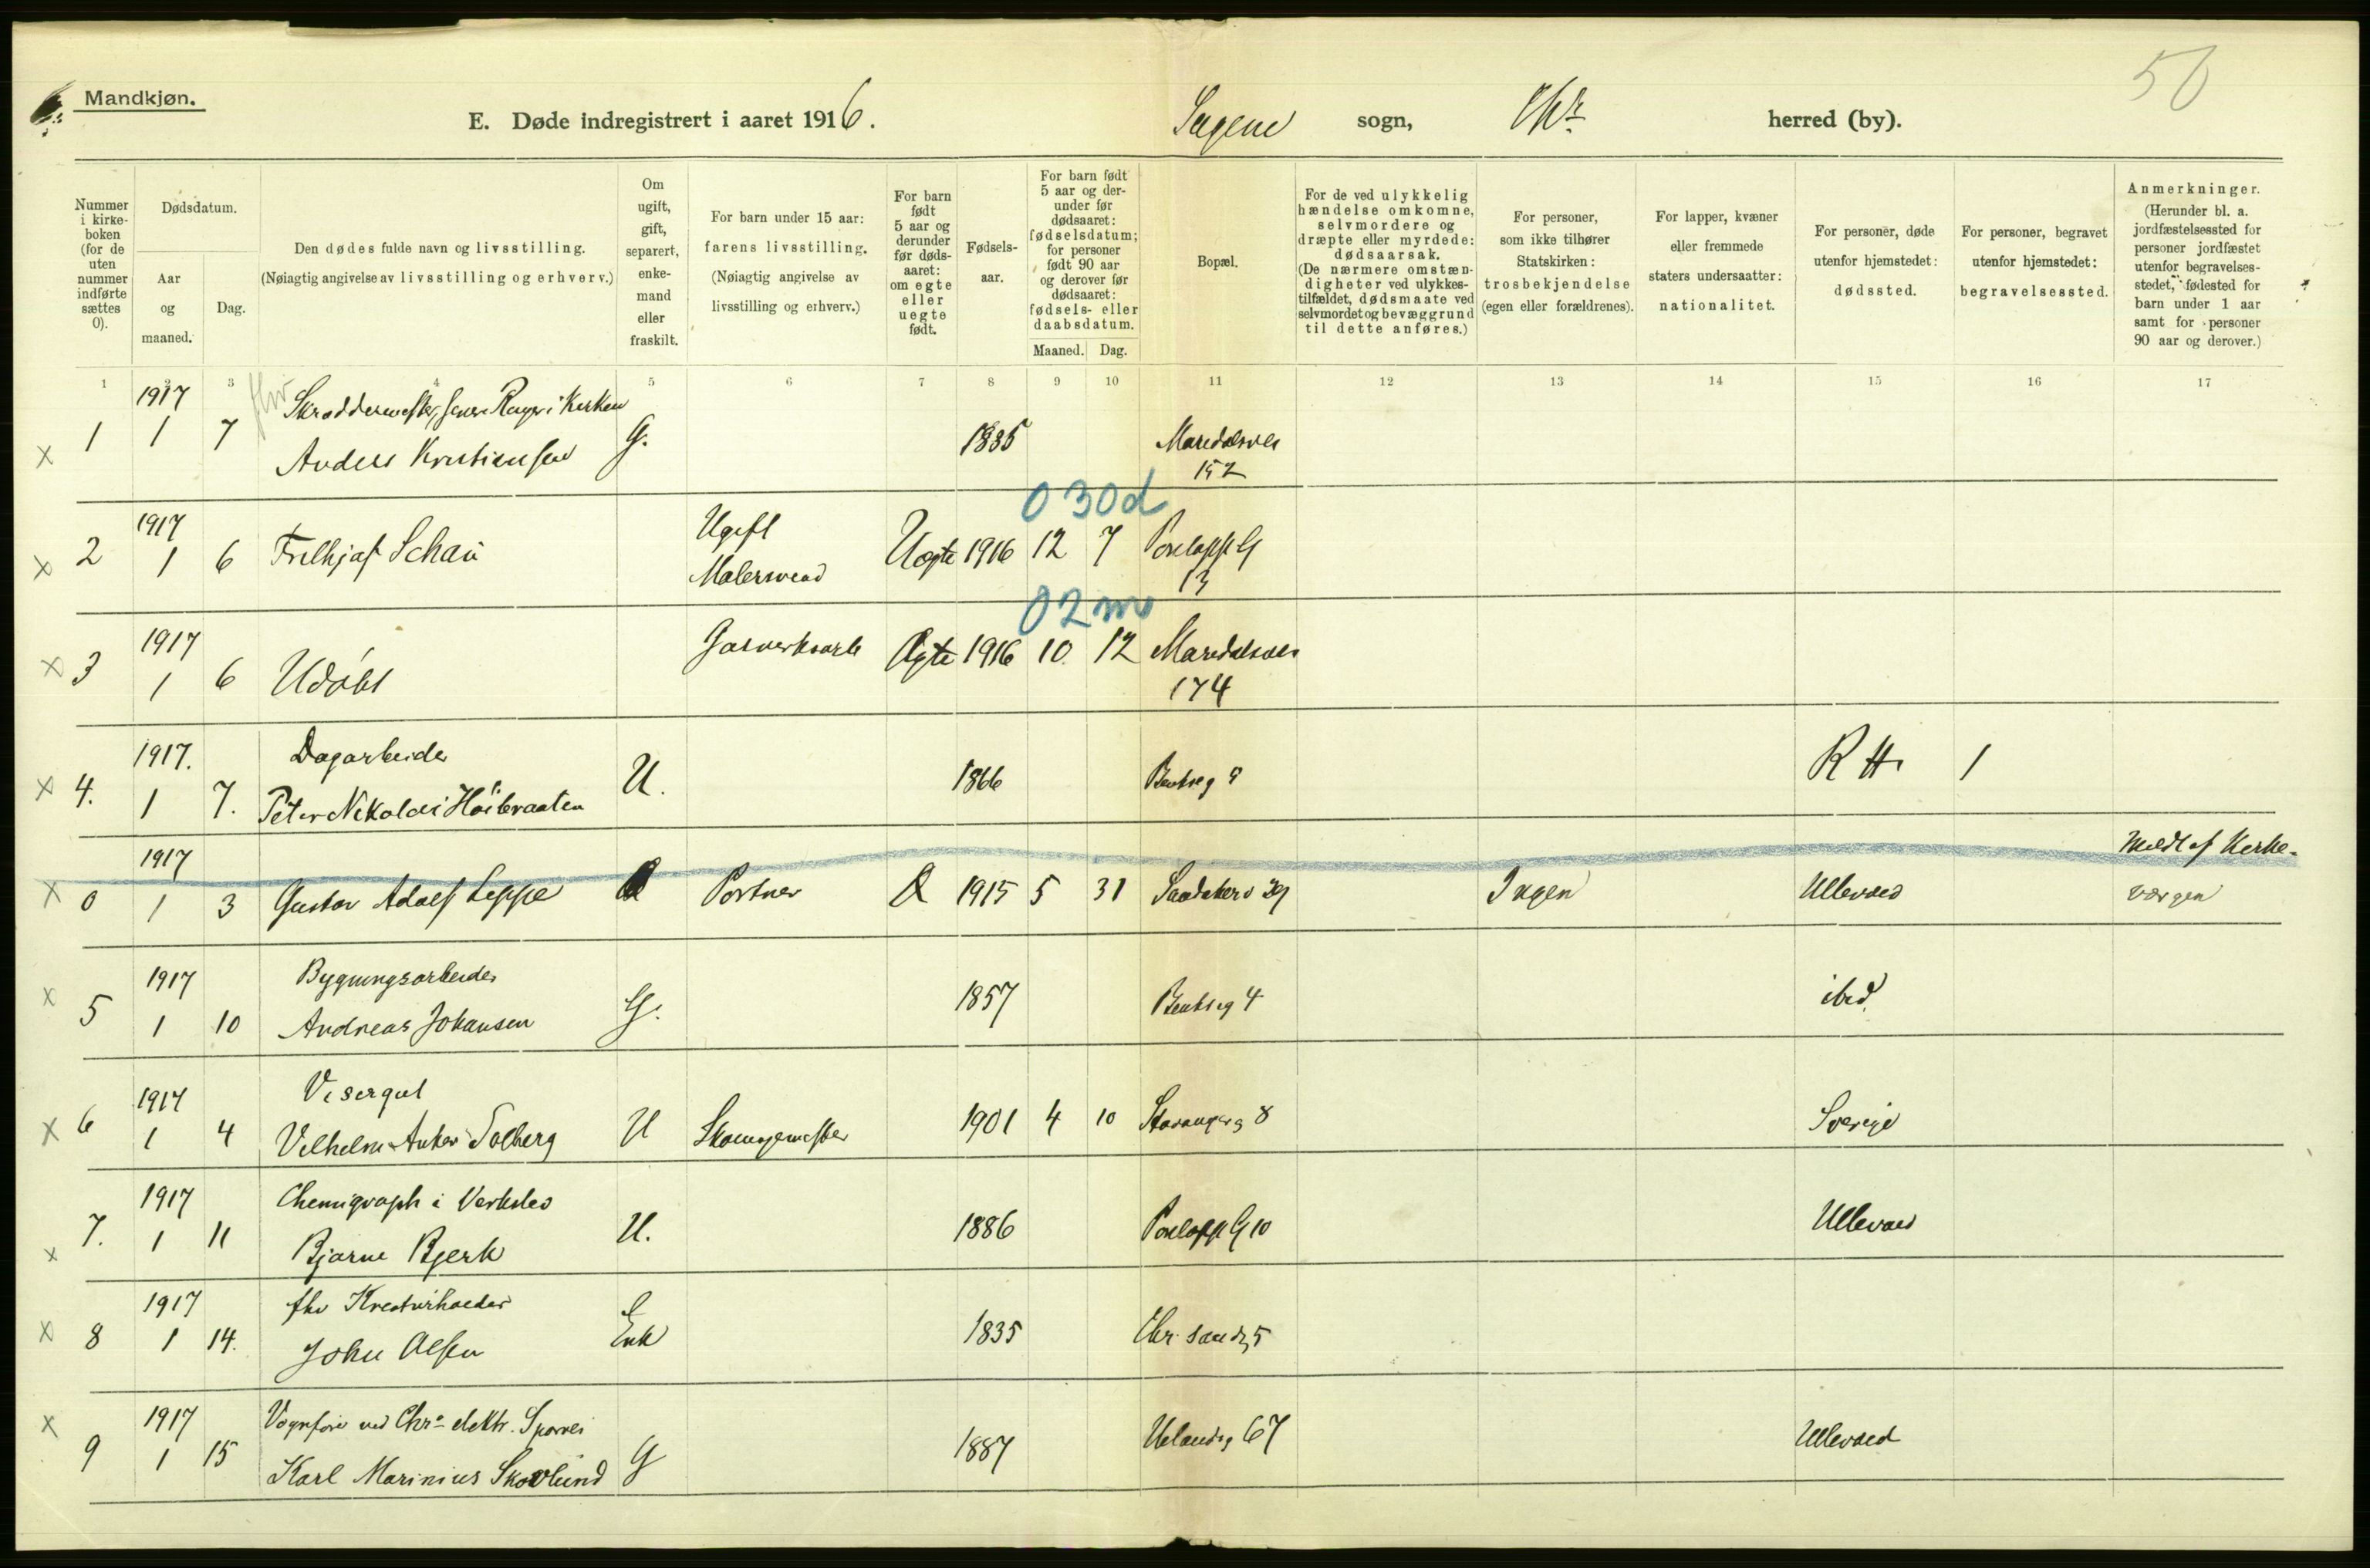 50
Mandkjøn.
E. Døde indregistrert i aaret 1916. Sagene sogn, Chr. herred (by).
Nummer i kirkeboken (for de uten nummer indførte sættes 0).
Dødsdatum.
Aar og maaned.
Dag.
Den dødes fulde navn og livsstilling.
(Nøiagtig angivelse av livsstilling og erhverv.)
Om ugift, gift, separert, enkemand eller fraskilt.
For barn under 15 aar: farens livsstilling.
(Nøiagtig angivelse av livsstilling og erhverv.)
For barn født 5 aar og derunder før dødsaaret: om egte eller uegte født.
Fødselsaar.
For barn født 5 aar og derunder før dødsaaret: fødselsdatum; for personer født 90 aar og derover før dødsaaret: fødsels- eller daabsdatum.
Maaned. Dag.
Bopæl.
For de ved ulykkelig hændelse omkomne, selvmordere og dræpte eller myrdede: dødsaarsak.
(De nærmere omstændigheter ved ulykkestilfældet, dødsmaate ved selvmordet og bevæggrund til dette anføres.)
For personer, som ikke tilhører Statskirken: trosbekjendelse (egen eller forældrenes).
For lapper, kvæner eller fremmede staters undersaatter: nationalitet.
For personer, døde utenfor hjemstedet: dødssted.
For personer, begravet utenfor hjemstedet: begravelsessted.
Anmerkninger.
(Herunder bl. a. jordfæstelsessted for personer jordfæstet utenfor begravelsesstedet, fødested for barn under 1 aar samt for personer 90 aar og derover.)
1 2 3 4 5 6 7 8 9 10 11 12 13 14 15 16 17
1917 Skræddermester, i Kirken
x 1 1 7 Anders Kristiansen G. 1835 Maridalsvei 152
030d
1917 Ugift
x 2 1 6 Schau Malersvend Uegte 1916 12 7 13
02 m
1917
x 3 1 6 Udøbt Gasverksarb Ægte 1916 10 12 Maridalsvei 174
1917. Dagarbeider
x 4. 1 7. Peter Nikolai Høibraaten U. 1866 Bentseg 9 R H. 1
1917 Meldt af Kirke-
x 0 1 3 Gustav Adolf Leppe Portner 1915 5 31 Ingen Ullevaal værgen
1917 Bygningsarbeider
x 5 1 10 Andreas Johansen G. 1857 Bentseg 4 ibid.
1917 Visergut
x 6 1 4 Vilhelm Anker Solberg U Skomagermester 1901 4 10 Stavangerg 8 Sverige
1917 Chemigraph i Verksted
x 7. 1 11 Bjarne Bjerk U. 1886 10 Ullevaal
1917 fhv Kreaturhandler
x 8 1 14. John Olsen Enk 1835 Chr.sandg 5
1917 Vognfører ved Chra elektr. Sporvei
x 9 1 15 Karl Marinius Skovlund G 1887 Uelandsg 67 Ullevaal